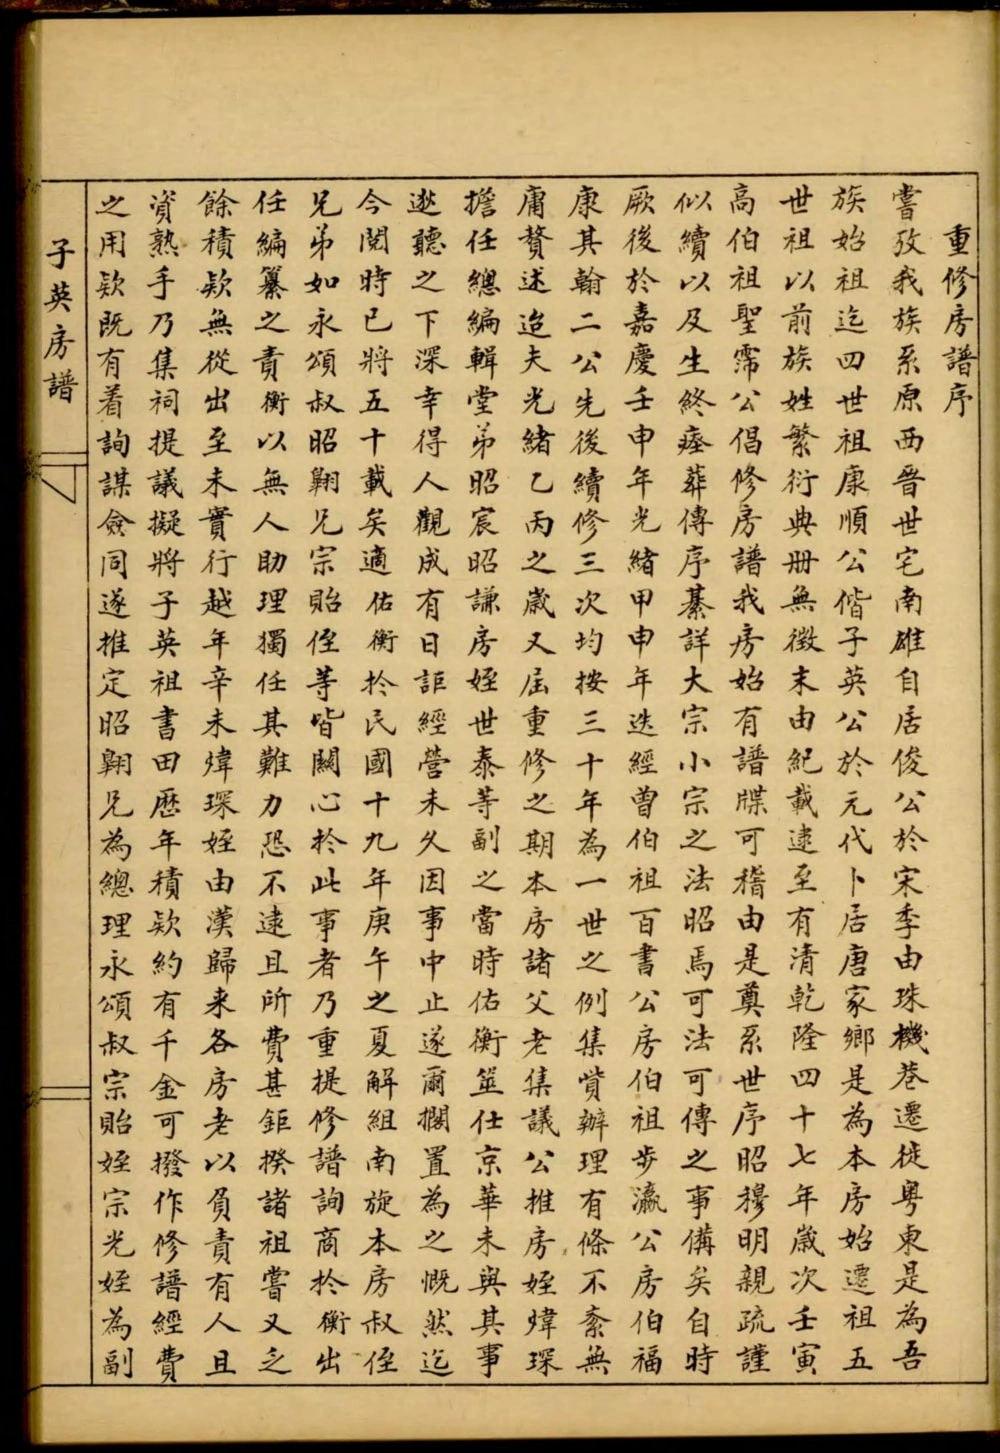 重修房譜序
嘗攷我族系原西晉世宅南雄自居俊公於宋季由珠機巷遷徙粵東是為吾
族始祖迄四世祖康順公偕子英公於元代卜居唐家鄉是為本房始遷祖五
世祖以前族姓繁衍典冊無徵末由紀載逮至有清乾隆四十七年歲次壬寅
高伯祖聖霈公倡修房譜我房始有譜牒可稽由是奠系世序昭穆明親疏謹
似續以及生終瘞葬傳序綦詳大宗小宗之法昭焉可法可傳之事備矣自時
厥後於嘉慶壬申年光緒甲申年迭經曾伯祖百書公房伯祖步瀛公房伯福
康其翰二公先後續修三次均按三十年為一世之例集貲辦理有條不紊無
庸贅述迨夫光緒乙丙之歲又屆重修之期本房諸父老集議公推房姪煒琛
擔任總編輯堂弟昭宸昭謙房姪世泰等副之當時佑衡筮仕京華未與其事
逖聽之下深幸得人觀成有日詎經營未久因事中止遂爾擱置為之慨然迄
今閱時已將五十載矣適佑衡於民國十九年庚午之夏解組南旋本房叔侄
兄弟如永頌叔昭翱兄宗貽侄等皆關心於此事者乃重提修譜詢商於衡出
任編纂之責衡以無人助理獨任其難力恐不逮且所費甚鉅揆諸祖嘗又乏
餘積欵無從出至未實行越年辛未煒琛姪由漢歸來各房老以負責有人且
資熟手乃集祠提議擬將子英祖書田歷年積欵約有千金可撥作修譜經費
之用欵既有着詢謀僉同遂推定昭翱兄為總理永頌叔宗貽姪宗光姪為副
子英房譜